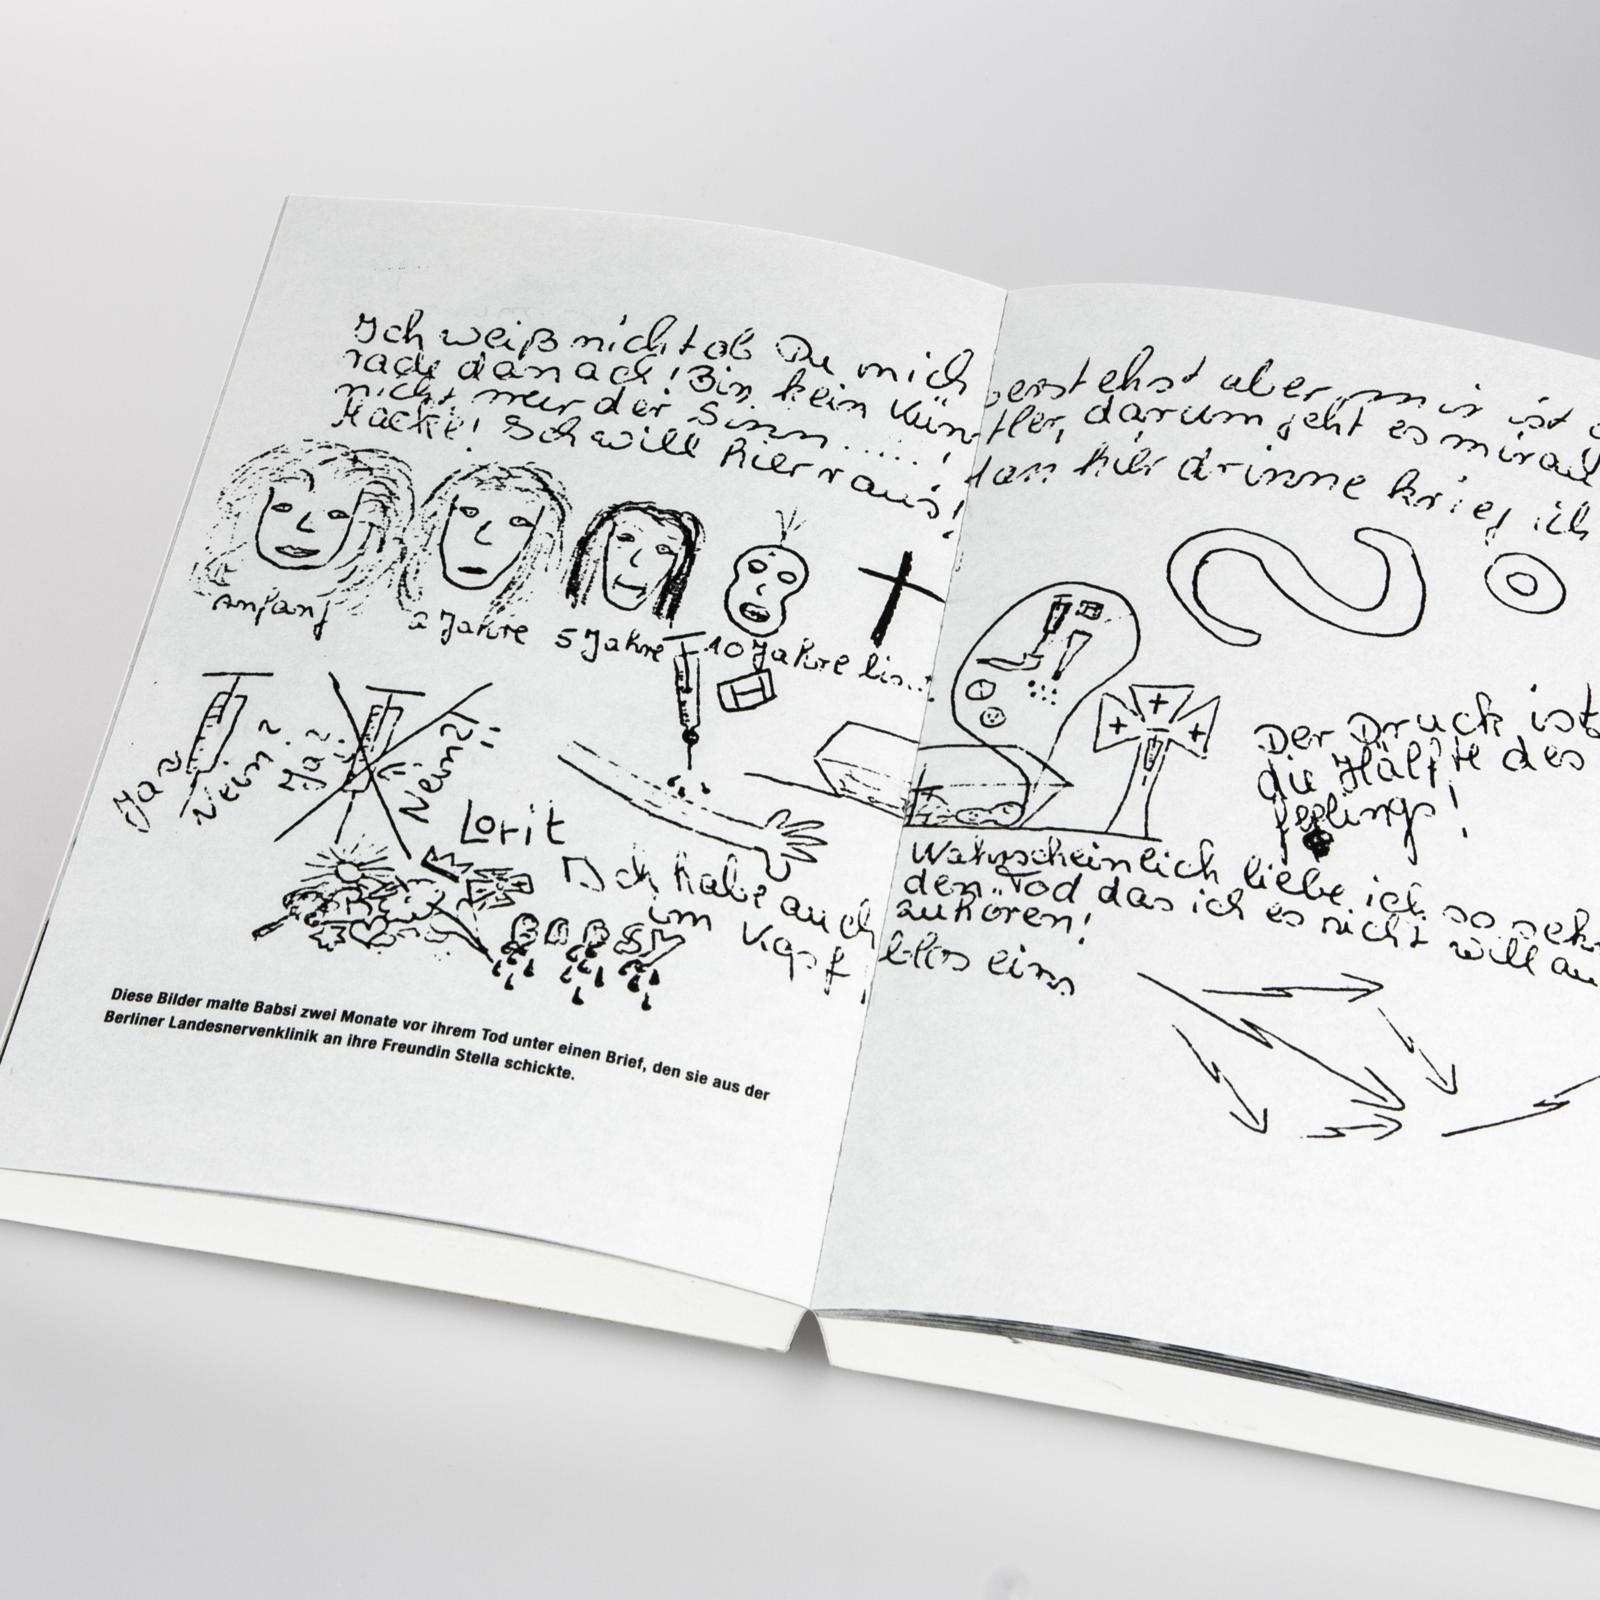 Ich weiß nicht ob Du mich verstehst aber mir ist
rade danach! Bin kein Künstler, darum geht es mir au
nicht nur der Sinn......!
Kacke! Ich will hier raus! dann hier drinne krieg ich
Anfang
2 Jahre
5 Jahre
10 Jahre
Ja?
Nein?
Ja?
Nein?!
Lorit
Ich habe auch
im Kopf
blos eins
Der Druck ist
die Hälfte des
feelings!
Wahrscheinlich liebe ich so seh
den Tod das ich es nicht will au
zuhören!
Diese Bilder malte Babsi zwei Monate vor ihrem Tod unter einen Brief, den sie aus der
Berliner Landesnervenklinik an ihre Freundin Stella schickte.